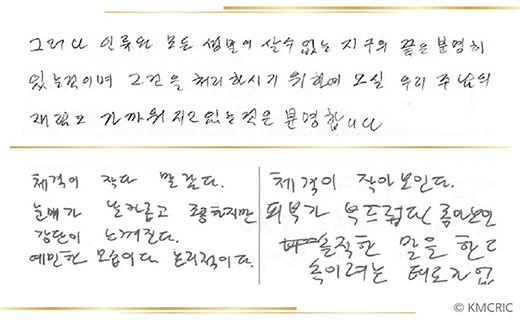 그러나 인류와 모든 생물이 살수 없는 지구의 끝은 분명히
있는것이며 그것을 처리하시기 위하여 오실 우리 주님의
재림도 가까워 지고 있는것은 분명합니다
체격이 작다 말랐다.
눈매가 날카롭고 조용하지만
강단이 느껴진다.
예민한 모습이다. 논리적이다.
체격이 작아보인다.
피부가 부드럽다
솔직한 말을 한다
속이려는 태도가 없
© KMCRIC